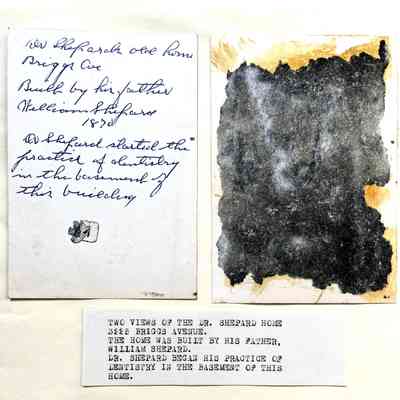 Dr Shepards old home
Briggs Ave
Built by his father
William Shepard
1870
Dr Shepard started the
practice of dentistry
in the basement of
this building
TWO VIEWS OF THE DR. SHEPARD HOME
BRIGGS AVENUE.
THE HOME WAS BUILT BY HIS FATHER,
WILLIAM SHEPARD.
DR. SHEPARD BEGAN HIS PRACTICE OF
DENTISTRY IN THE BASEMENT OF THIS
HOME.